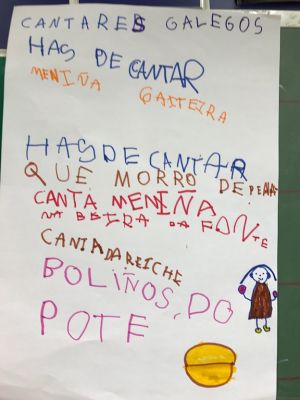 CANTARES GALEGOS
HAS DE CANTAR
MENIÑA
GAITEIRA
HAS DE CANTAR
QUE MORRO DE PENA
CANTA MENIÑA
NA BEIRA DA FONTE
CANTADAREICHE
BOLIÑOS DO
POTE